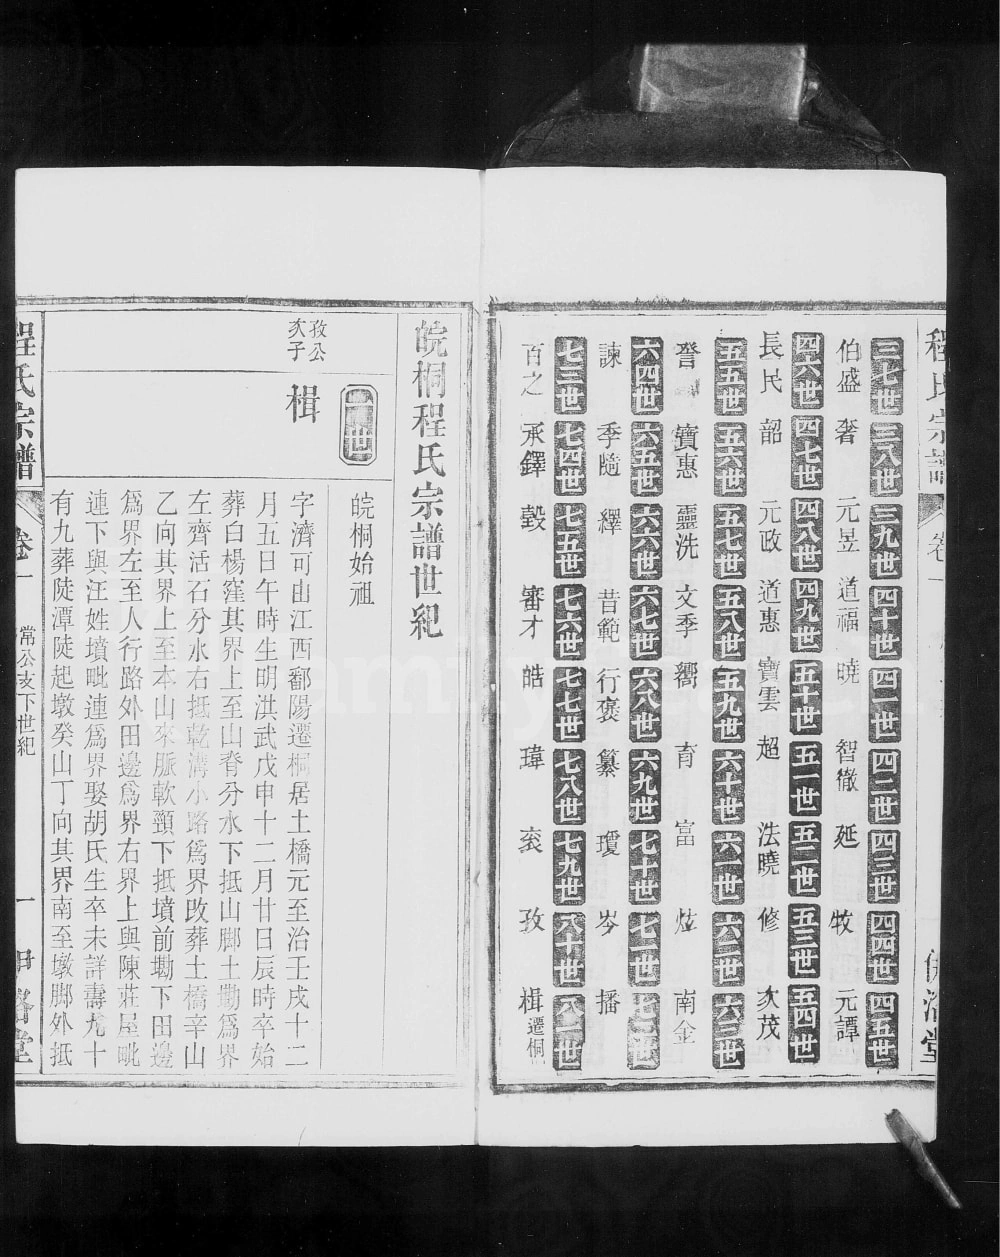 程氏宗譜 卷一
三七世 三八世 三九世 四十世 四一世 四二世 四三世 四四世 四五世
伯盛 奢 元昱 道福 曉 智徹 延 牧 元譚
四六世 四七世 四八世 四九世 五十世 五一世 五二世 五三世 五四世
長民 韶 元政 道惠 寶雲 超 法曉 修 次茂
五五世 五六世 五七世 五八世 五九世 六十世 六一世 六二世 六三世
詧 寶惠 靈洗 文季 嚮 育 富 炫 南金
六四世 六五世 六六世 六七世 六八世 六九世 七十世 七一世 七二世
諫 季隨 繹 昔範 行褒 纂 瓊 岑 播
七三世 七四世 七五世 七六世 七七世 七八世 七九世 八十世 八一世
百之 承鐸 瑴 審才 皓 瑋 衮 孜 楫遷桐
皖桐程氏宗譜世紀
一世
皖桐始祖
孜公次子
楫
字濟可由江西鄱陽遷桐居土橋元至治壬戌十二
月五日午時生明洪武戊申十二月廿日辰時卒始
葬白楊窪其界上至山脊分水下抵山脚土墈爲界
左齊活石分水右抵乾溝小路爲界改葬土橋辛山
乙向其界上至本山來脈軟頸下抵墳前墈下田邊
爲界左至人行路外田邊爲界右界上與陳莊屋毗
連下與汪姓墳毗連爲界娶胡氏生卒未詳壽九十
有九葬陡潭陡起墩癸山丁向其界南至墩脚外抵
程氏宗譜 卷一 常公支下世紀 一